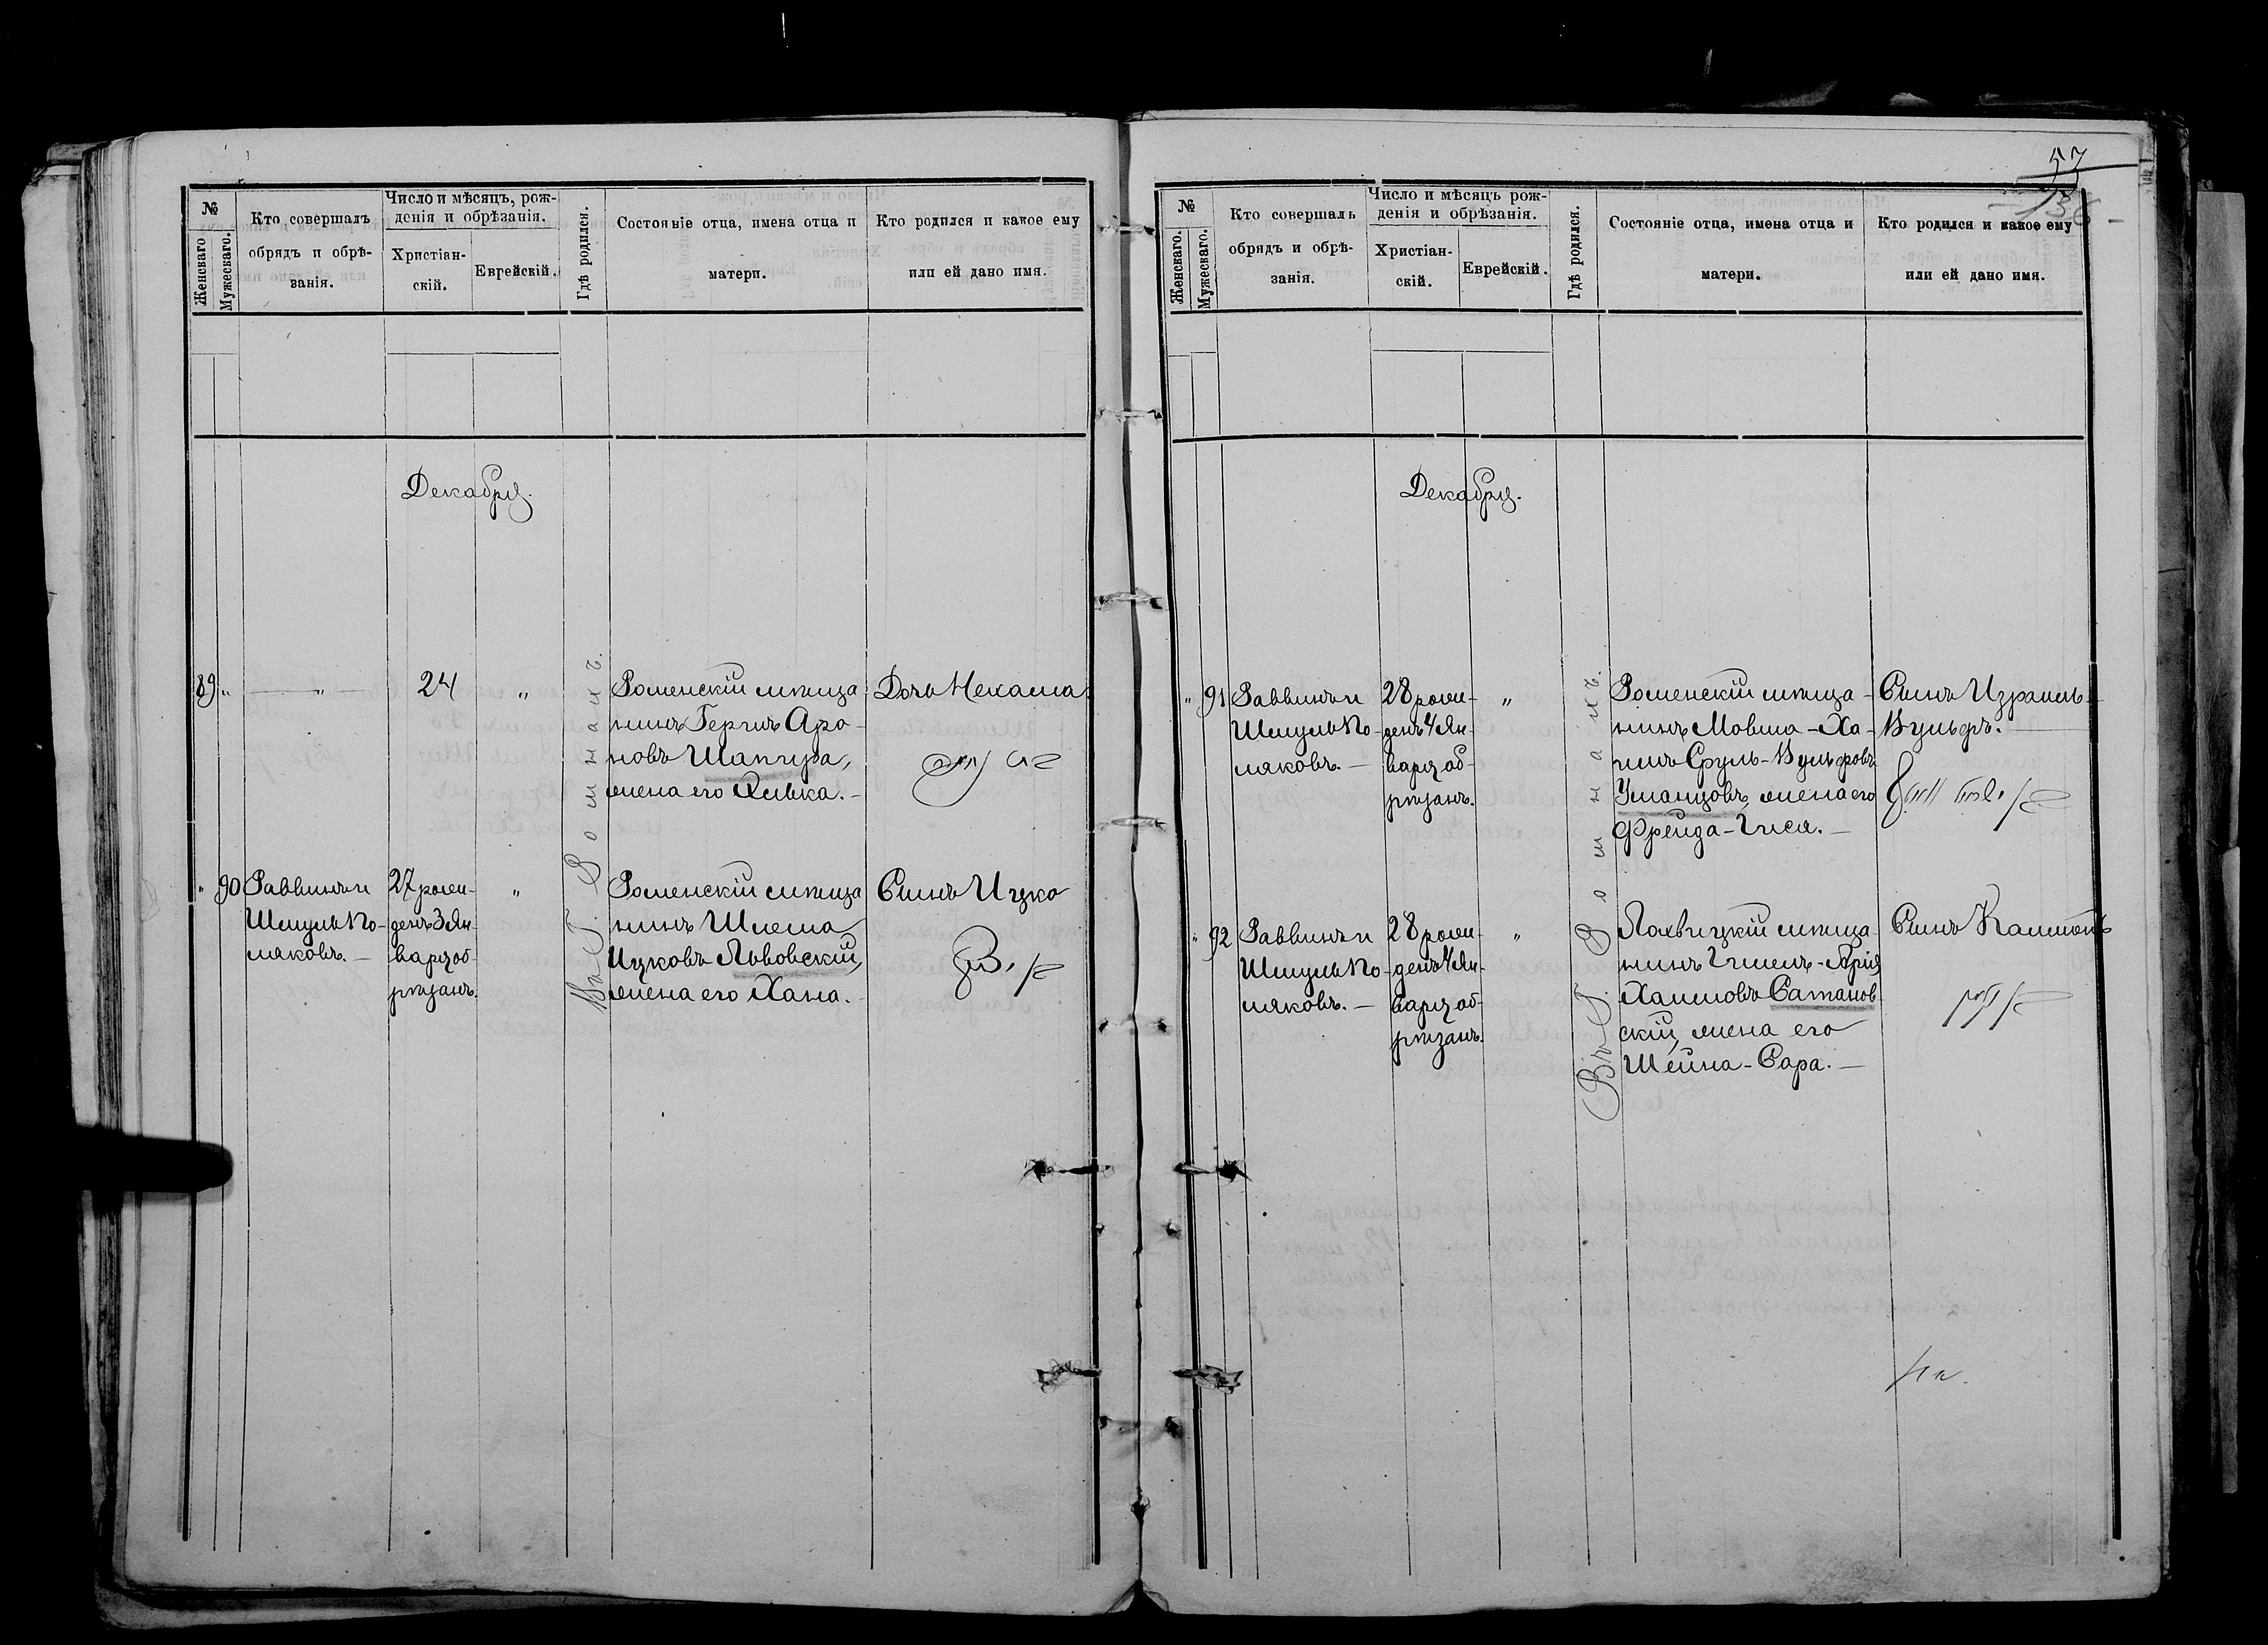 №
Женскаго
Мужескаго.
Кто совершалъ
обрядъ и обрѣ-
занія.
Число и мѣсяцъ, рож-
денія и обрѣзанія.
Христіан-
скій.
Еврейскій.
Гдѣ родился.
Состояніе отца, имена отца и
матери.
Кто родился и какое ему
или ей дано имя.
Декабря.
89 " — " — 24 "
Роменскій мѣща
нинъ Герцъ Аро-
новъ Шапиро,
жена его Ривка. -
Дочь Нехама
" 90
Раввинъ и
Шмуль По-
ляковъ. —
27 рож-
денъ 3 Ян-
варя об-
рѣзанъ.
"
Роменскій мѣща
нинъ Шлема
Ицковъ Львовскій,
жена его Хана. -
Сынъ Ицко
Въ Г. Ромнахъ.
53
№
Женскаго.
Мужескаго.
Кто совершалъ
обрядъ и обрѣ-
занія.
Число и мѣсяцъ рож-
денія и обрѣзанія.
Христіан-
скій.
Еврейскій.
Гдѣ родился.
Состояніе отца, имена отца и
матери.
Кто родился и какое ему
или ей дано имя.
Декабря.
" 91
Раввинъ и
Шмуль По-
ляковъ. —
28 рож-
денъ 4 Ян-
варя об-
рѣзанъ.
"
Роменскій мѣща-
нинъ Мовша-Ха-
имъ Сруль-Вульфовъ
Уманцовъ, жена его
Фрейда-Гися. —
Сынъ Израиль-
Вульфъ.
" 92
Раввинъ и
Шмуль По-
ляковъ. —
28 рож-
денъ 4 Ян-
варя об-
рѣзанъ.
"
Лохвицкій мѣща-
нинъ Гилель-Арія
Хаимовъ Сатанов-
скій, жена его
Шейна-Сара. —
Сынъ
Въ Г. Ромнахъ.